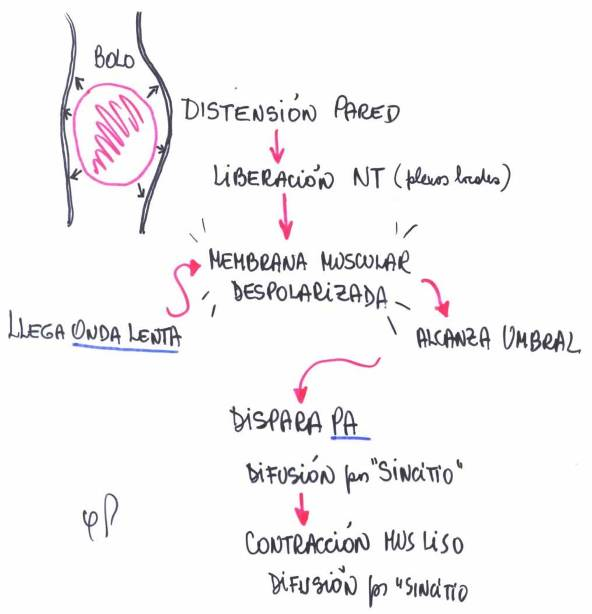 BOLO
DISTENSIÓN PARED
LIBERACIÓN NT (plexos locales)
MEMBRANA MUSCULAR
DESPOLARIZADA
LLEGA ONDA LENTA
ALCANZA UMBRAL
DISPARA PA
DIFUSIÓN por "SINCITIO"
CONTRACCIÓN MUS LISO
DIFUSIÓN por "SINCITIO